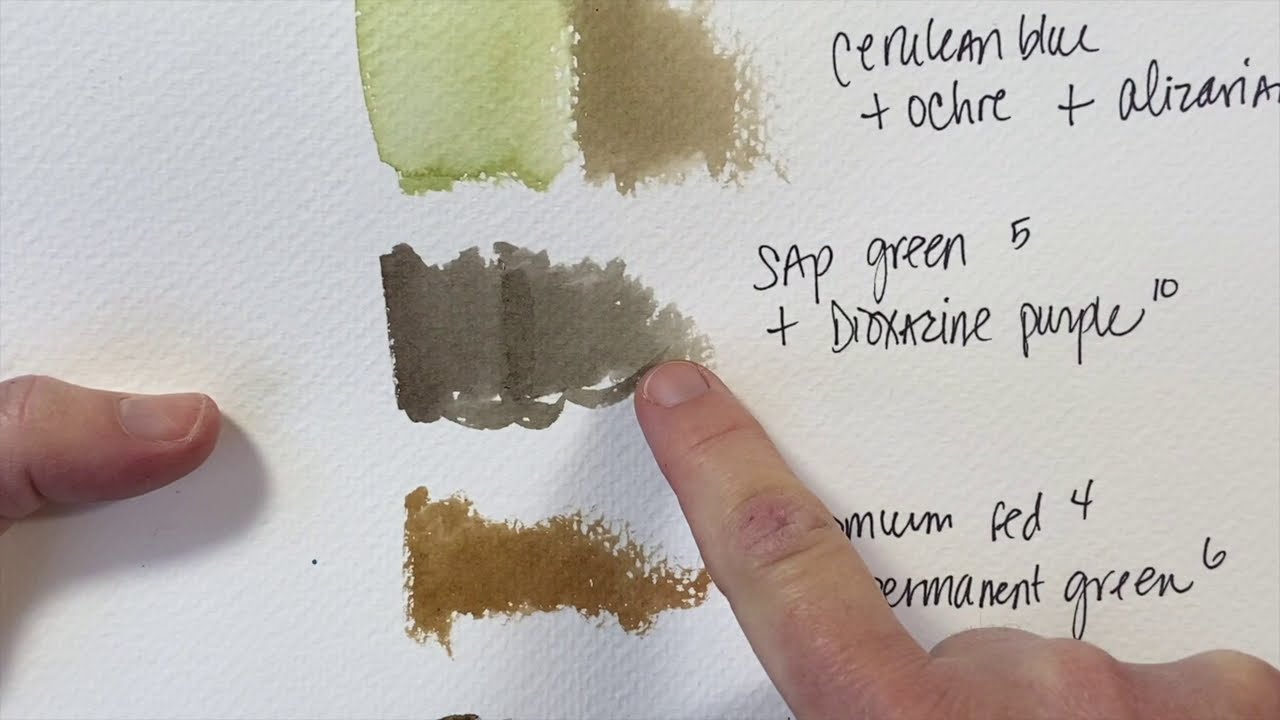 cerulean blue
+ ochre + alizarin
SAP green 5
+ Dioxazine purple 10
red 4
permanent green 6